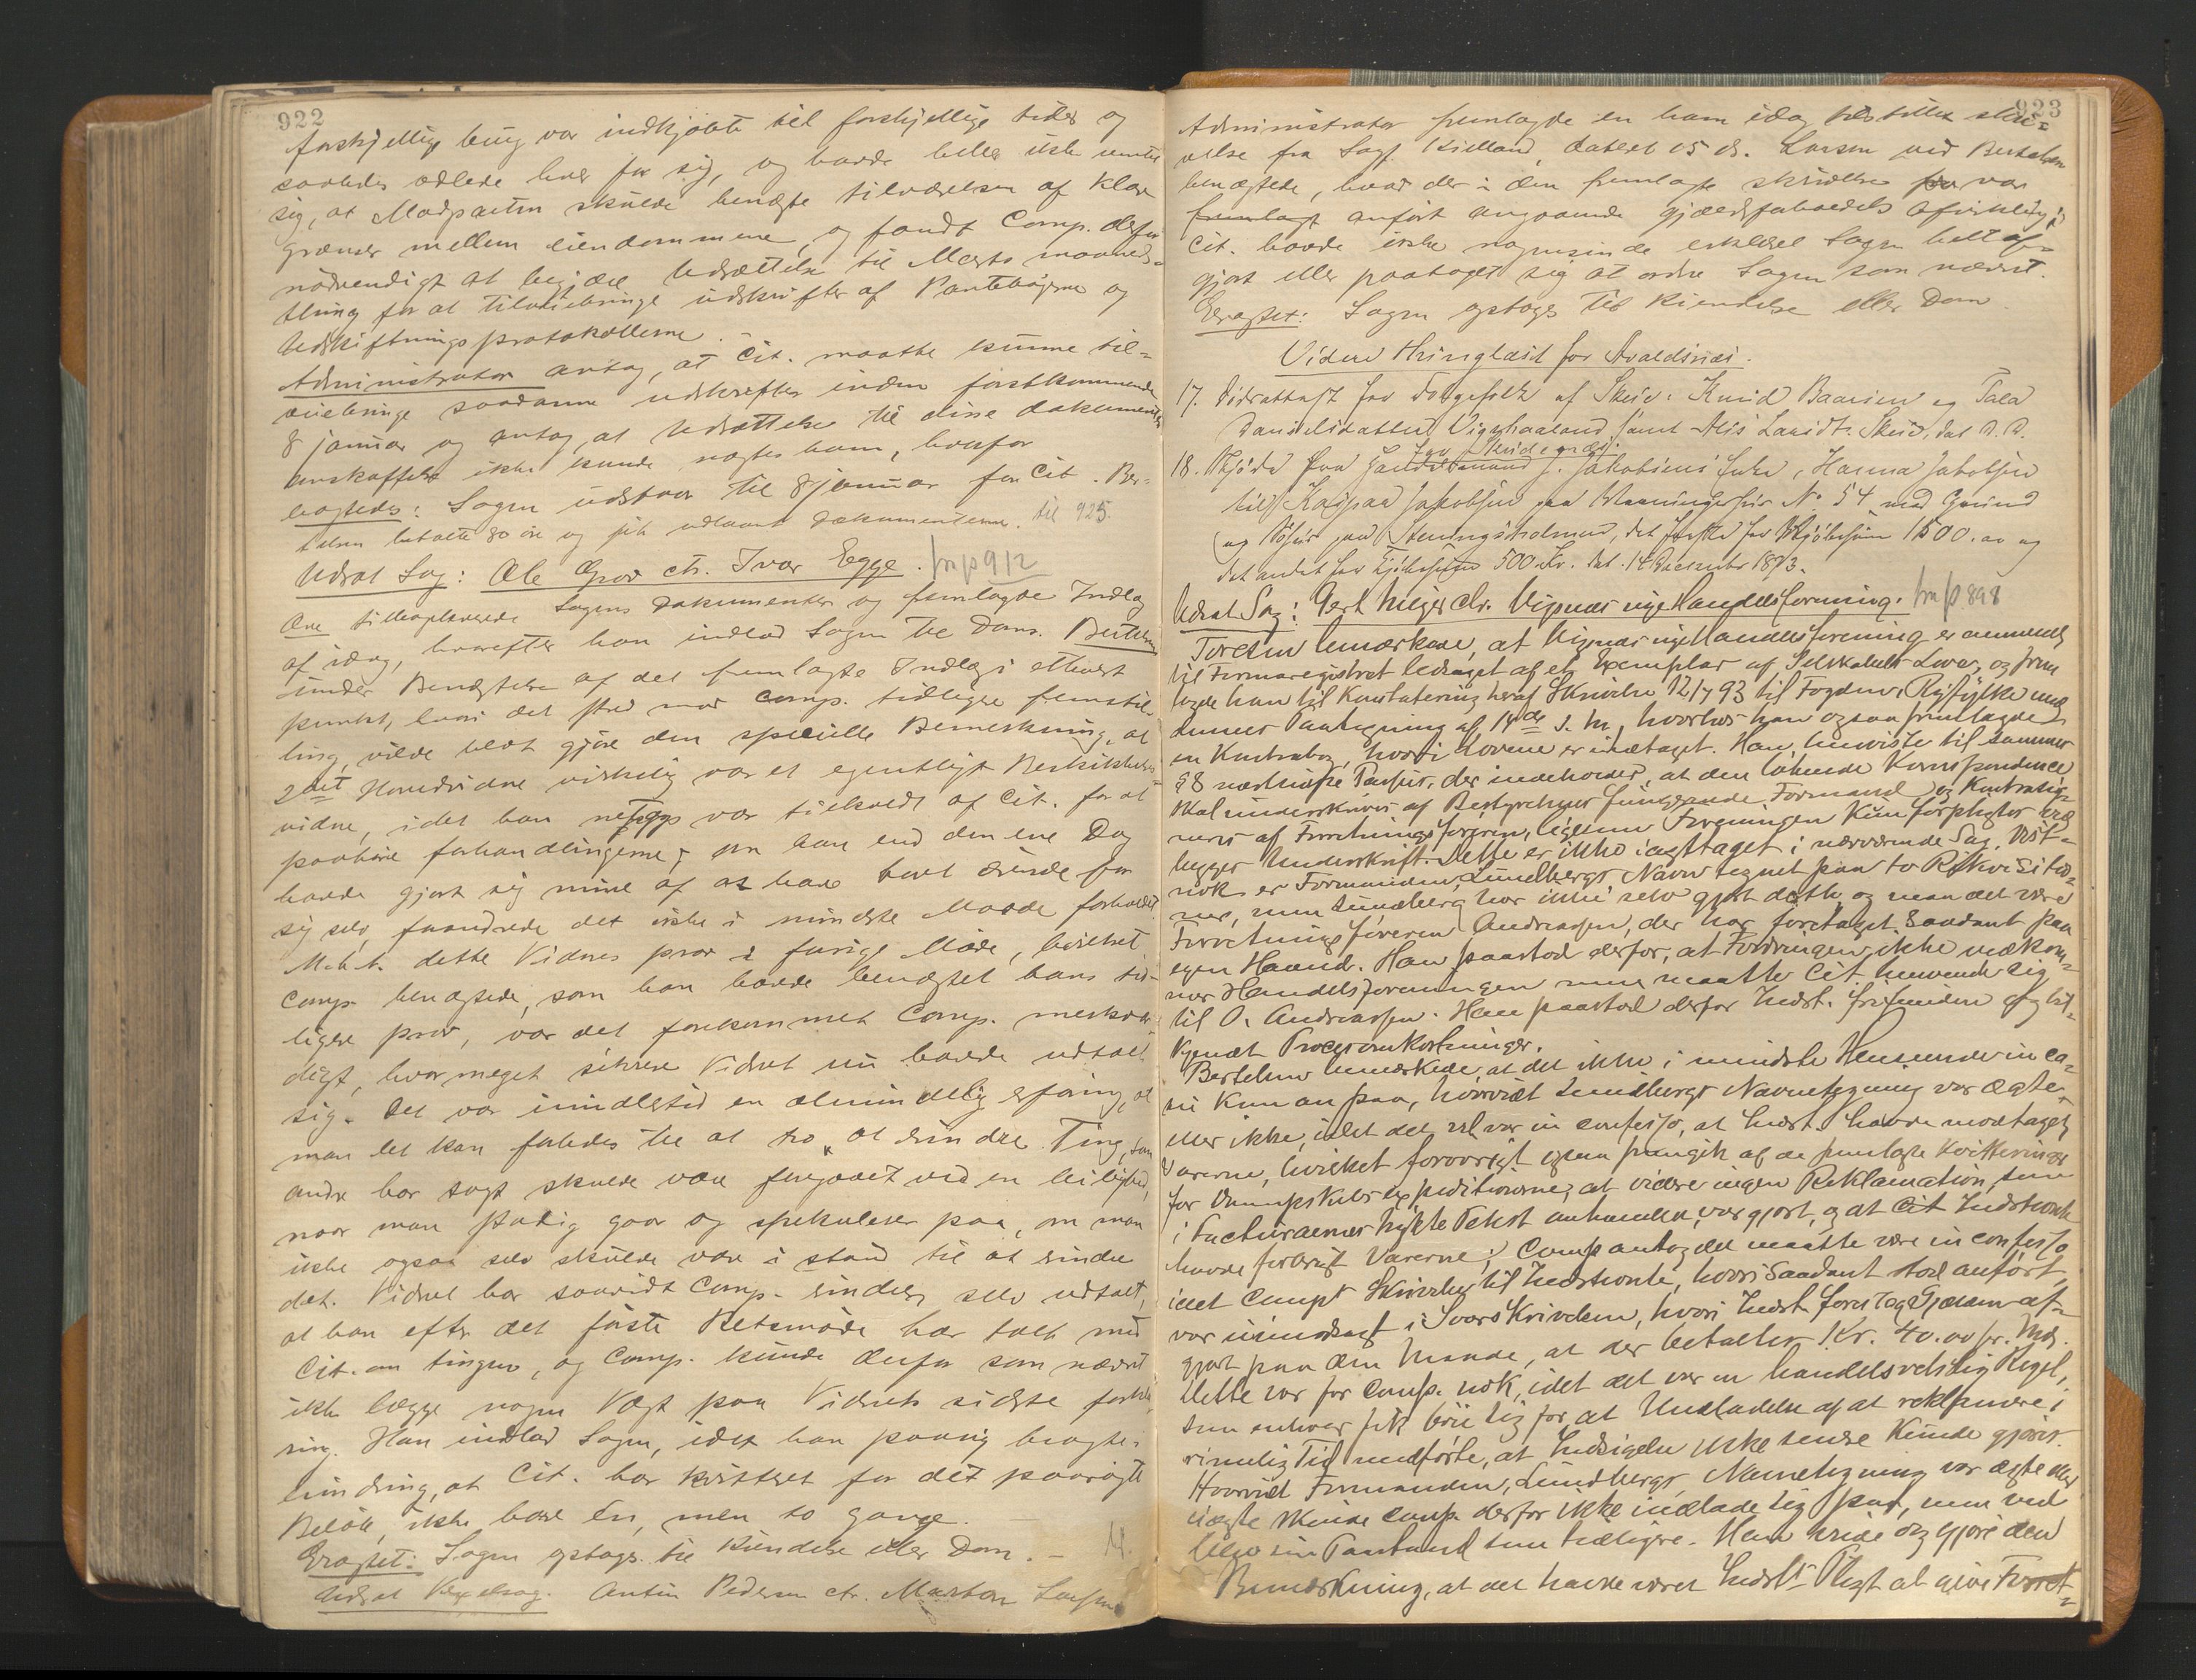 922
forskjellige brug var indkjøbte til forskjellige tider og
saaledes ædlede hver for sig, og havde heller ikke ventet
sig, at Modparten skulde benægte tilværelsen af klare
grænser mellem eiendommene, og fandt Comp. derfor
nødvendigt at begjære Udsættelse til Marts maaneds-
thing for at tilveiebringe udskrifter af Pantebøgerne og
Udskiftningsprotokollerne.
Administrator antog, at Cit. maatte kunne til=
veiebringe saadanne udskrifter inden førstkommende
8 januar og antog, at Udsættelse til disse dokumenters
anskaffelse ikke kunde nægtes ham, hvorfor
eragtedes: Sagen udstaar til 8 januar for Cit. Ber-
telsen betalte 80 øre og fik udlaant dokumenterne. til 925
Udsat Sag: Ole Grov ctr. Ivar Egge. fra p 912
Ove tilbageleverede Sagens dokumenter og fremlagde Indlæg
af idag, hvorefter han indlod Sagen til Doms. Bertelsen
under Benægtelse af det fremlagte Indlæg i ethvert
punkt, hvori det stred mod Comp. tidligere fremstil-
ling, vilde blot gjøre den specielle Bemerkning, at
2det Hovedvidne virkelig var et egentligt Beskikkelses
vidne, idet han netop var tilkaldt af Cit. for at
paahøre forhandlingerne; om han end den ene Dag
havde gjort sig mine af at have havt ærinde for
sig selv, forandrede det ikke i mindste Maade forholdet.
M. h. t. dette Vidnes prov i forrige Møde, hvilket
Comp. benægtede, som han havde benægtet hans tid-
ligere prov, var det forekommet Comp. merkvær-
digt, hvor meget sikrere Vidnet nu havde udtalt
sig. Det var imidlertid en almindelig erfaring, at
man let kan forledes til at tro "at erindre Ting, som
andre har sagt skulde være foregaaet ved en leilighed,
naar man stadig gaar og spekulerer paa, om man
ikke ogsaa selv skulde være i stand til at erindre
det. Vidnet har saavidt Comp. erindrer, selv udtalt,
at han efter det første Retsmøde har talt med
Cit. om tingen, og Comp. kunde derfor som nævnt
ikke lægge nogen Vægt paa Vidnets sidste forkla
ring. Han indlod Sagen, idet han paany bragte i
Erindring, at Cit. har kvitteret for det paasøgte
Beløb, ikke bare én, men to gange.
Eragtet: Sagen optoges til Kiendelse eller Dom. –
Udsat Vexelsag. Antin Pedersen ctr. Morten Larsen
923
Administrator fremlagde en ham idag tilstillet skri=
velse fra Sagf. Kielland, dateret 15 ds. Larsen ved Bertelsen
benægtede, hvad der i den fremlagte skrivelse var
fremlagt anført angaaende gjældsforholdets afvikling;
Cit. havde ikke nogensinde erklæret Sagen helt af=
gjort eller paataget sig at ordne Sagen som nævnt.
Eragtet: Sagen optoges til Kiendelse eller Dom.
Videre thinglæst for Avaldsnæs.
17. Fødraadskft for Folgefolk af Skeie: Knud Baarsen og Tala
Danielsdatter Vigshaaland samt Nis Lauritz. Skeie, dat. D. D.
18. Skjøde fra Handelsmand J. Jakobsens Enke, Hanna Jakobsen
til Kaspar Jakobsen paa Vaaningshus No. 54 med Grund
og Søhus paa Steningsholmen, det første for Kjøbesum 1500.00 og
det andet for Kjøbesum 500 Kr. dat. 14 December 1893.
Udsat Sag: Gert Meyer ctr. Vigsnæs nye Handelsforening. fra p 898
Toresen bemærkede, at Vigsnæs nye Handelsforening er anmeldt
til Firmaregistret ledsaget af et Exemplar af Selskabets Love, og frem
lagde han til Konstatering heraf Skrivelse 12/7 93 til Fogden i Ryfylke med
dennes Paategning af 14de s. M., hvorhos han ogsaa fremlagde
en Kontrabog, hvori Lovene er indtaget. Han henviste til sammes
§ 8 næstsidste Passus, der indeholder, at den løbende Korrespondence
skal underskrives af Bestyrelsens fungerende Formand og Kontrasig-
neres af Forretningsføreren, ligesom Foreningen kun forpligtes ved
begges Underskrift. Dette er ikke iagttaget i nærværende Sag. Vist-
nok er Formanden, Lundbergs Navn tegnet paa to Rekvisitio=
ner, men Lundberg har ikke selv gjort dette, og maa det være
Forretningsføreren Andreassen, der har foretaget saadant paa
egen Haand. Han paastod derfor, at Fordringen ikke vedkom-
mer Handelsforeningen men maatte Cit. henvende sig
til O. Andreassen. Han paastod derfor Indst. frifunden og til=
kjendt Procesomkostninger.
Bertelsen bemærkede, at det ikke i mindste Henseende in ca-
su kom an paa, hvorvidt Lundbergs Navnetegning var ægte
eller ikke, idet det vel var in confesso, at Indst. havde modtaget
Varerne, hvilket forøvrigt ogsaa fremgik af de fremlagte Kvitteringer
for Dampskibsexpeditionerne, at videre ingen Reklamation, som
i Facturaernes trykte Tekst anholdes, var gjort, og at Cit Indstevnte
havde forbrugt Varerne; Comp antog det maatte være in confesso
idet Compt Skrivelse til Indstevnte, hvori saadant stod anført,
var uimodsagt i Svarsskrivelsen, hvori Indst foreslog Gjælden af-
gjort paa den Maade, at der betaltes Kr. 40.00 pr. Md.
Dette var for Comp. nok, idet det var en handelsretslig Regel,
som enhver fik bøie sig for, at Undladelse af at reklamere i
rimelig Tid medførte, at Indsigelse ikke senere kunde gjøres.
Hvorvidt Formanden, Lundbergs, Navnetegning var ægte eller
uægte kunde Comp. derfor ikke indlade sig paa, men ved
blev sin Paastand som tidligere. Han vilde og gjøre den
Bemærkning, at det havde været Indsts Pligt at give Forret-